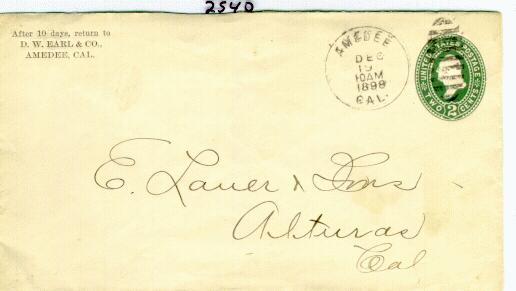 2540
After 10 days, return to
D. W. EARL & CO.,
AMEDEE, CAL.
AMEDEE
DEC
19
10AM
1898
CAL.
UNITED STATES POSTAGE
TWO 2 CENTS
E. Lauer & Sons
Alturas
Cal